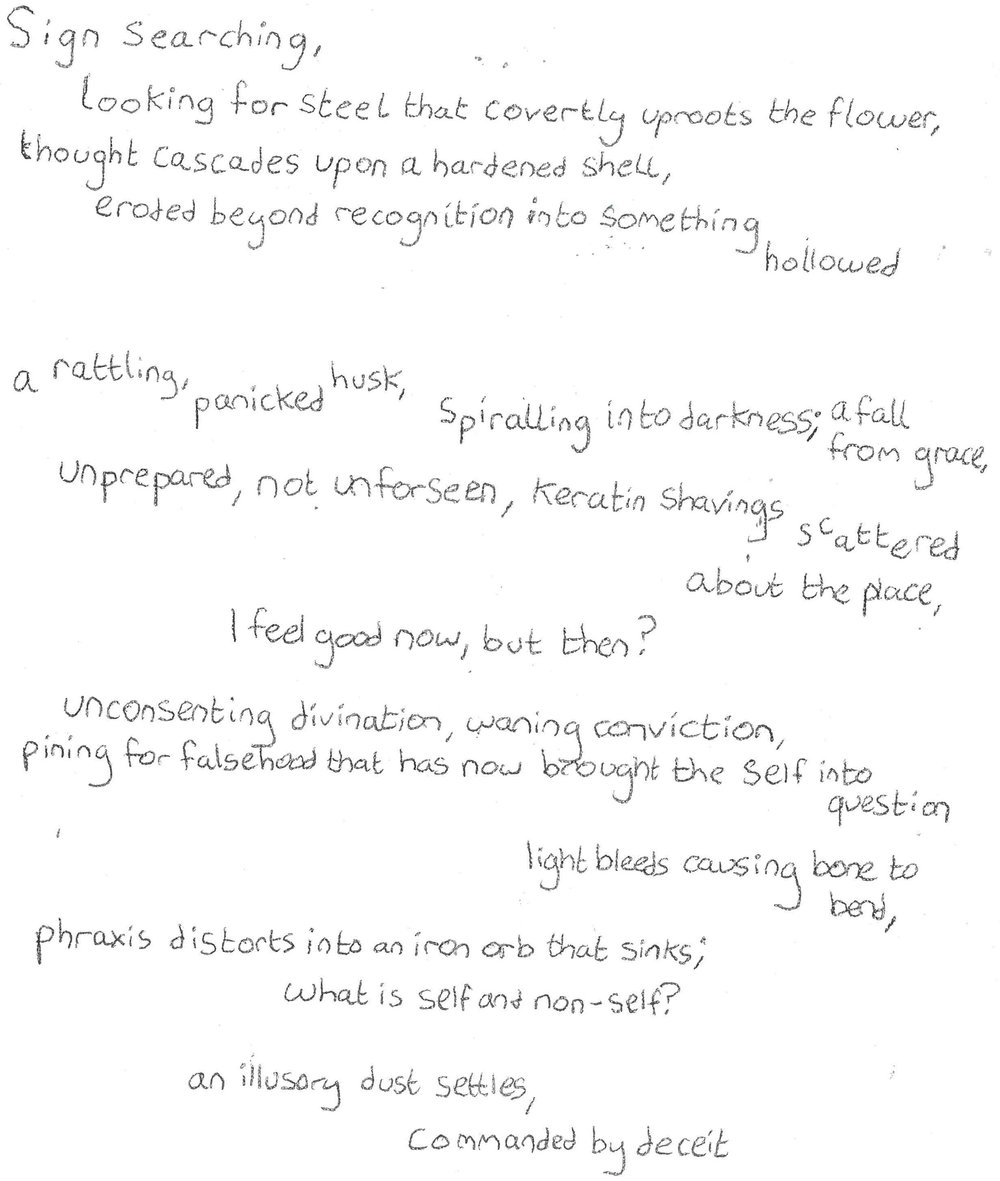 Sign Searching,
looking for steel that covertly uproots the flower,
thought cascades upon a hardened shell,
eroded beyond recognition into something
hollowed
a rattling, panicked husk, Spiralling into darkness; a fall
from grace,
unprepared, not unforseen, keratin shavings scattered
about the place,
I feel good now, but then?
unconsenting divination, waning conviction,
pining for falsehood that has now brought the self into
question
light bleeds causing bone to
bend,
phraxis distorts into an iron orb that sinks;
what is self and non-self?
an illusory dust settles,
Commanded by deceit